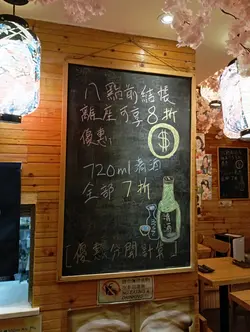 八點前結帳
離座可享8折
優惠!
$
720ml 清酒
全部7折
清酒
[優惠分開計算]